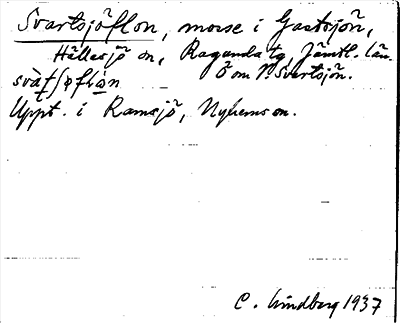 Svartsjöflon, mosse i Gastsjön,
Hällesjö sn, Ragunda tg, Jämtl. län.
Ö om N. Svartsjön.
svàt̠ʃɵflɑ̀n
Uppt. i Ramsjö, Nyhems sn.
C. Lindberg 1937